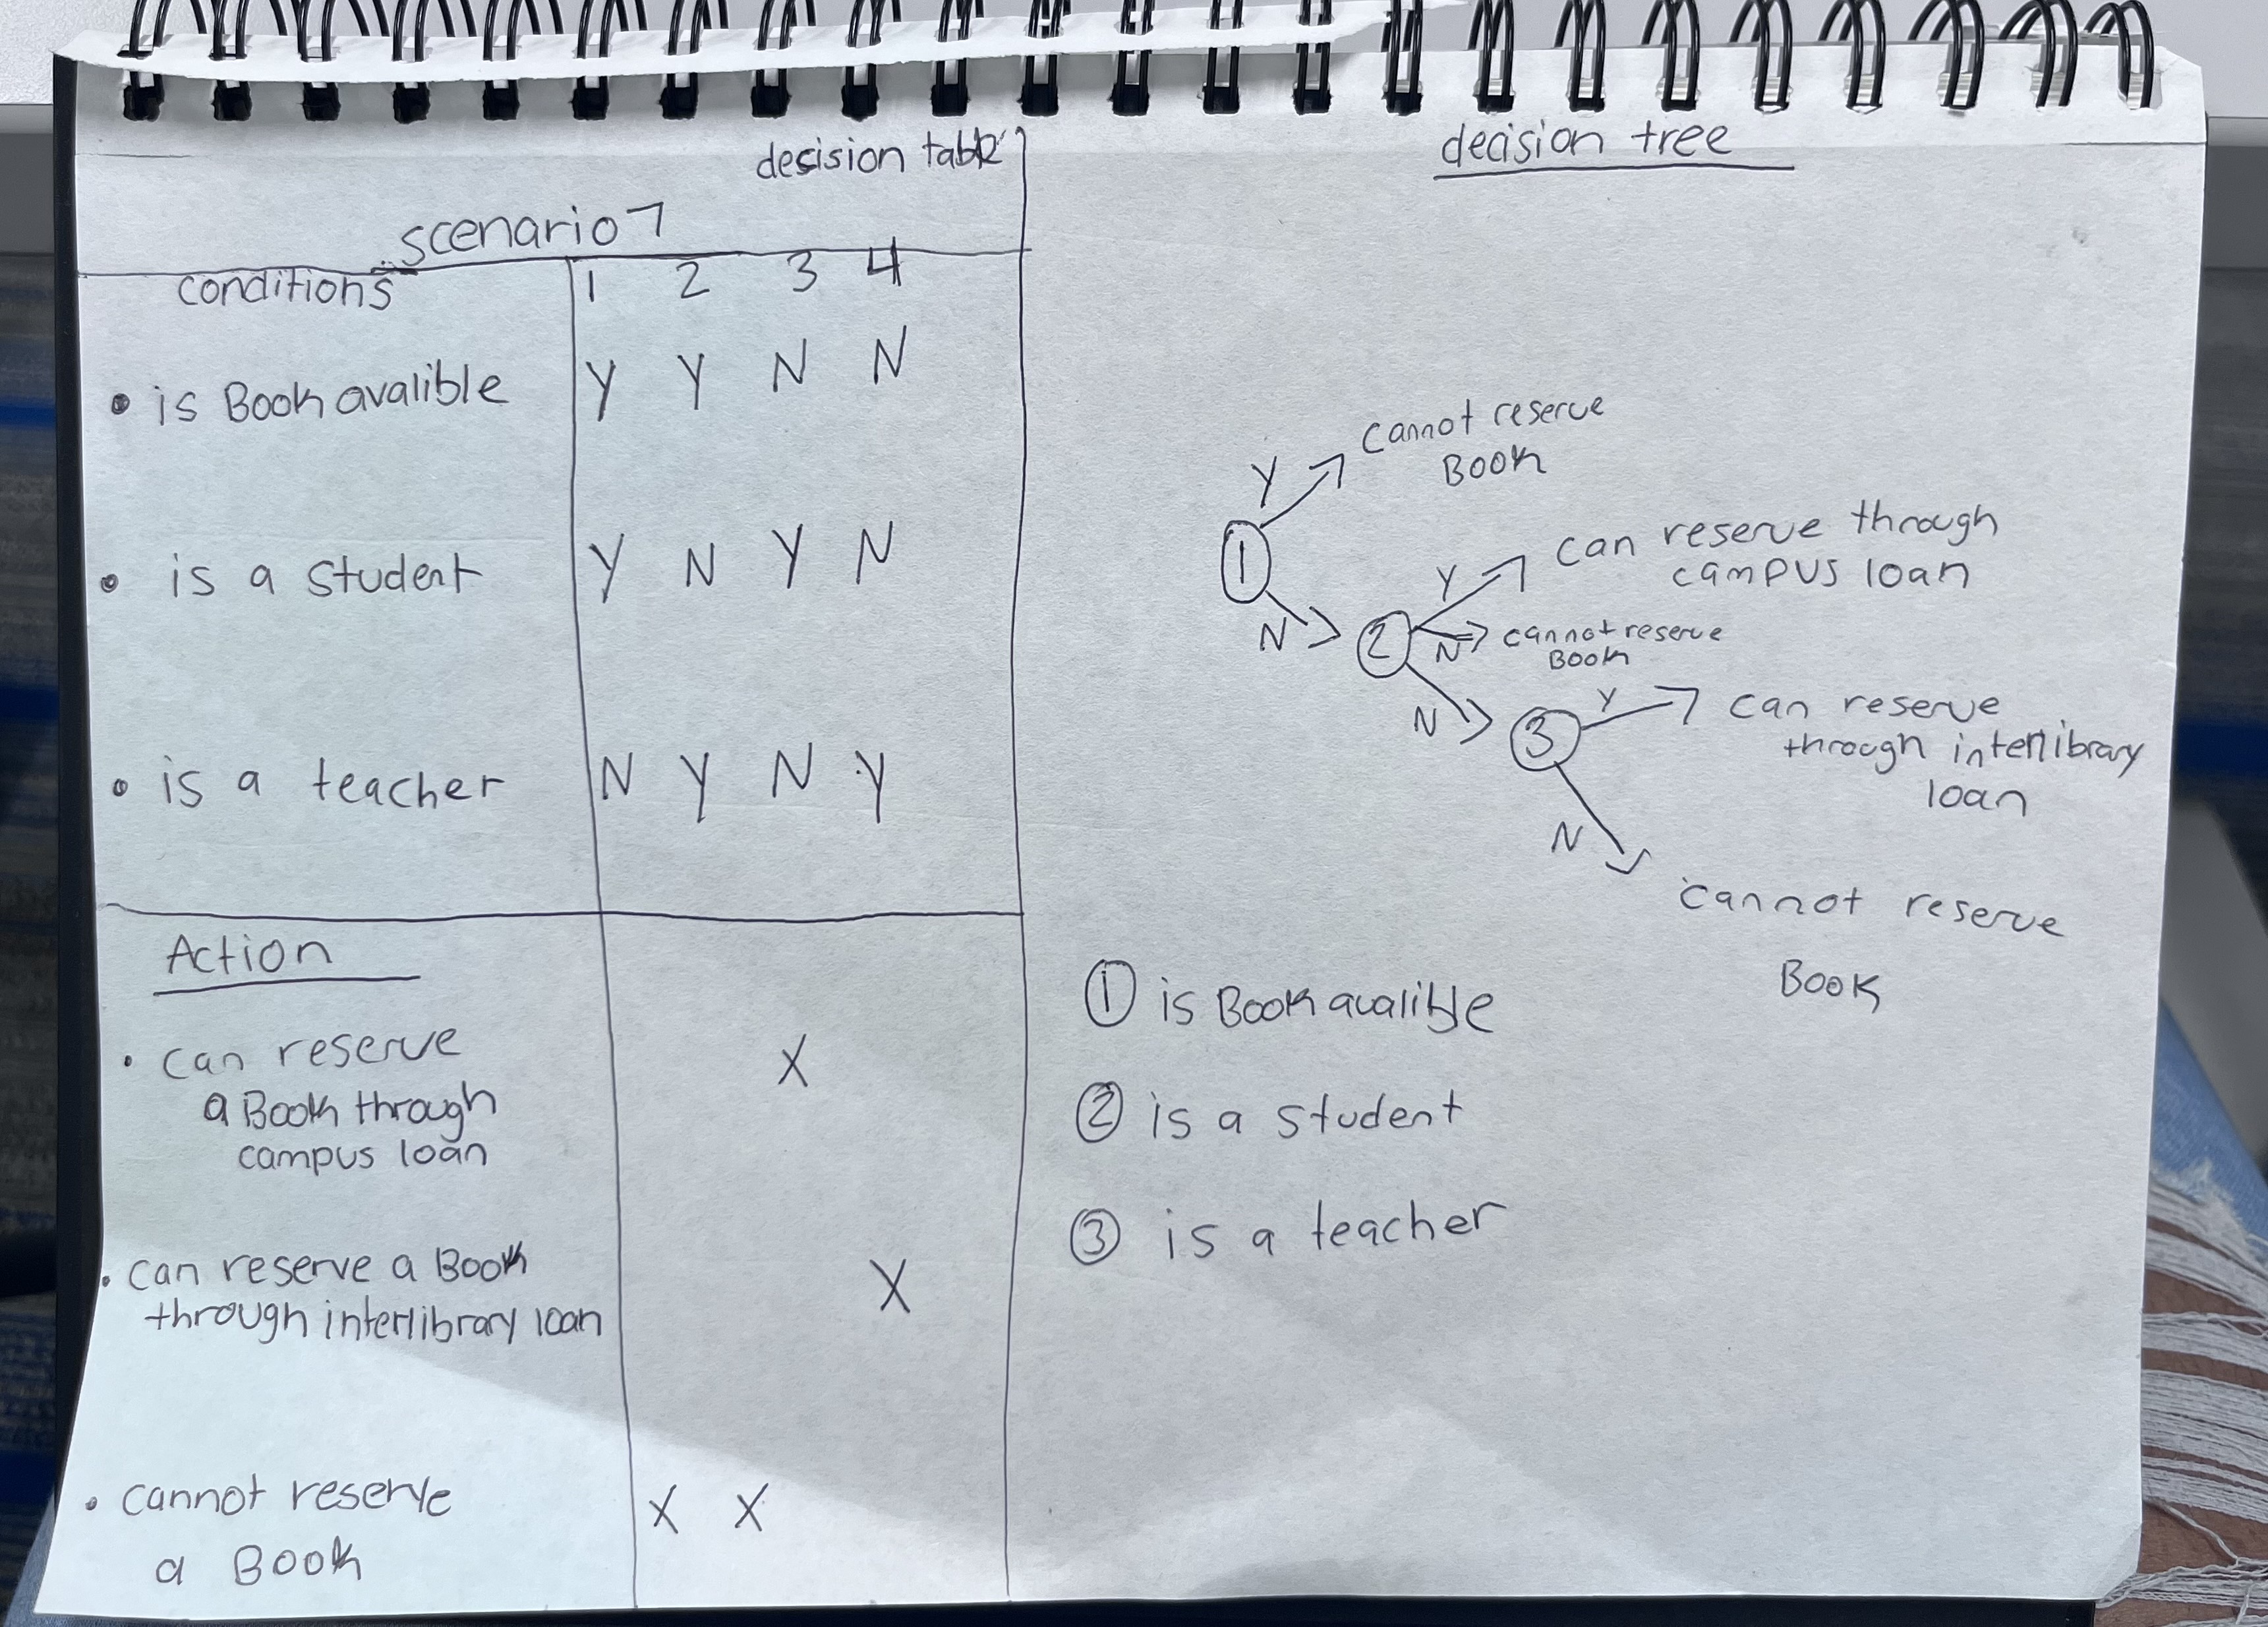 decision table
scenario 7
conditions 1 2 3 4
• is Book avalible Y Y N N
• is a student Y N Y N
• is a teacher N Y N Y
Action
• can reserve X
a Book through
campus loan
• can reserve a Book X
through interlibrary loan
• cannot reserve X X
a Book
decision tree
cannot reserve
Book
Y
1
can reserve through
campus loan
Y
N
2
N
cannot reserve
Book
N
3
Y
can reserve
through interlibrary
loan
N
cannot reserve
Book
1 is Book avalible
2 is a student
3 is a teacher